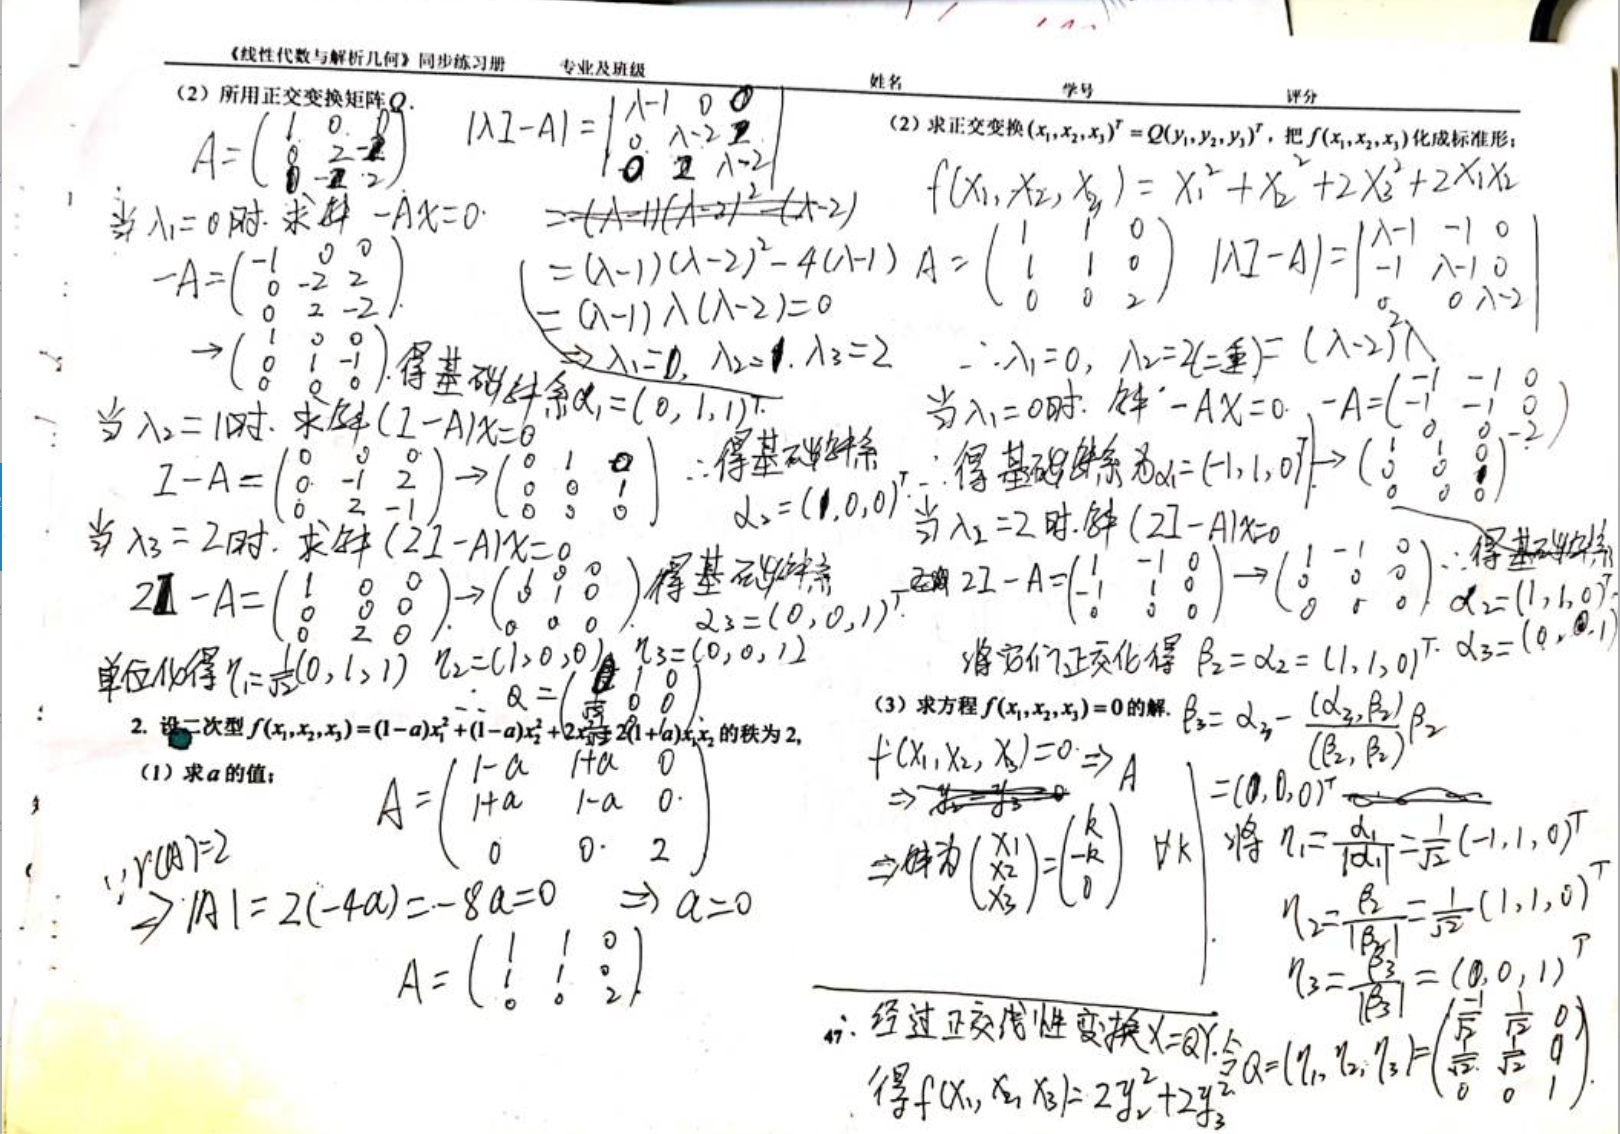 《线性代数与解析几何》同步练习册 专业及班级 姓名 学号 评分
(2) 所用正交变换矩阵Q.
A=
|λI-A|=
λ-1 0 0
0 λ-2 2
0 2 λ-2
当λ₁=0时.求解 -AX=0.
=(λ-1)(λ-2)²-(λ-2)
-A=
-1 0 0
0 -2 2
0 2 -2
=(λ-1)(λ-2)²-4(λ-1)
=(λ-1)λ(λ-2)=0
⇒λ₁=0, λ₂=1. λ₃=2
→
1 0 0
0 1 -1
0 0 0
得基础解系α₁=(0,1,1)ᵀ.
当λ₂=1时.求解(I-A)X=0
I-A=
0 0 0
0 -1 2
0 2 -1
→
0 1 0
0 0 1
0 0 0
∴得基础解系
α₂=(1,0,0)ᵀ.
当λ₃=2时.求解(2I-A)X=0
2I-A=
1 0 0
0 0 0
0 2 0
→
1 0 0
0 1 0
0 0 0
得基础解系
α₃=(0,0,1)ᵀ.
单位化得η₁=1/√2(0,1,1) η₂=(1,0,0), η₃=(0,0,1)
∴Q=
2. 设二次型f(x₁,x₂,x₃)=(1-a)x₁²+(1-a)x₂²+2x₃²+2(1+a)x₁x₂的秩为2,
(1) 求a的值;
A=
1-a 1+a 0
1+a 1-a 0.
0 0. 2
∵r(A)=2
⇒|A|=2(-4a)=-8a=0 ⇒a=0
A=
1 1 0
1 1 0
0 0 2
(2) 求正交变换(x₁,x₂,x₃)ᵀ=Q(y₁,y₂,y₃)ᵀ, 把f(x₁,x₂,x₃)化成标准形;
f(X₁,X₂,X₃)=X₁²+X₂²+2X₃²+2X₁X₂
A=
1 1 0
1 1 0
0 0 2
|λI-A|=
λ-1 -1 0
-1 λ-1 0
0 0 λ-2
∴λ₁=0, λ₂=2(二重)=(λ-2)²λ
当λ₁=0时.解-AX=0. -A=
-1 -1 0
-1 -1 0
0 0 -2
∴得基础解系为α₁=(-1,1,0)ᵀ
→
1 1 0
0 0 1
0 0 0
当λ₂=2时.解(2I-A)X=0
2I-A=
1 -1 0
-1 1 0
0 0 0
→
1 -1 0
0 0 0
0 0 0
∴得基础解系
α₂=(1,1,0)ᵀ.
α₃=(0,0,1)
将它们正交化得 β₂=α₂=(1,1,0)ᵀ.
β₃=α₃-(α₃,β₂)/(β₂,β₂)β₂
=(0,0,0)ᵀ
将η₁=α₁/|α₁|=1/√2(-1,1,0)ᵀ
η₂=β₂/|β₂|=1/√2(1,1,0)ᵀ
η₃=β₃/|β₃|=(0,0,1)ᵀ
(3) 求方程f(x₁,x₂,x₃)=0的解.
f(X₁,X₂,X₃)=0.⇒A
⇒y₂=y₃=0
⇒解为
X₁
X₂
X₃
=
k
-k
0
∀k
47
∴经过正交线性变换X=QY.
令Q=(η₁,η₂,η₃)=
-1/√2 1/√2 0
1/√2 1/√2 0
0 0 1
得f(X₁,X₂,X₃)=2y₂²+2y₃²